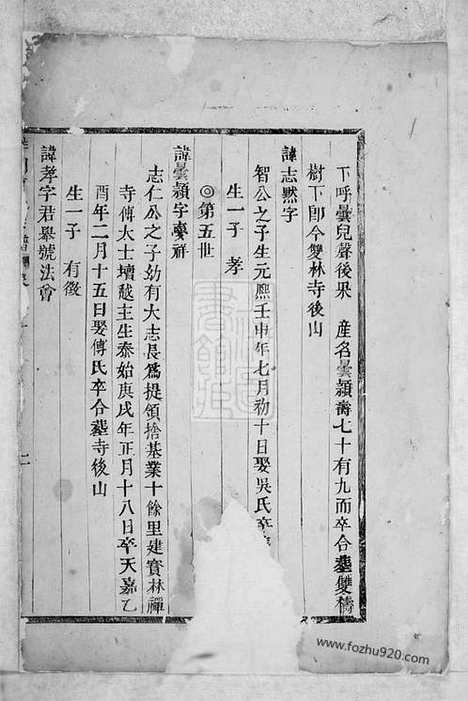 下呼曇兒聲後果 産名曇穎壽七十有九而卒合墓雙檮
樹下卽今雙林寺後山
諱志黙字
智公之子生元熙壬申年七月初十日娶吳氏卒
生一子 孝
◎第五世
諱曇穎字慶祥
志仁公之子幼有大志長爲提領捨基業十餘里建寳林禪
寺傅大士壇越主生泰始庚戌年正月十八日卒天嘉乙
酉年二月十五日娶傅氏卒合墓寺後山
生一子 有徵
諱孝字君舉號法會
二
www.fozhu920.com